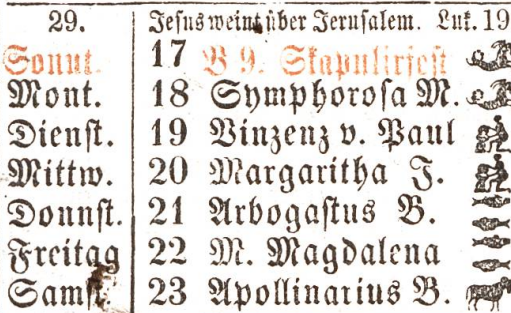 29. Jesus weint über Jerusalem. Luk. 19
Sonnt. 17 B 9. Skapulirfest
Mont. 18 Symphorosa M.
Dienst. 19 Vinzenz v. Paul
Mittw. 20 Margaritha J.
Donnst. 21 Arbogastus B.
Freitag 22 M. Magdalena
Samst. 23 Apollinarius B.